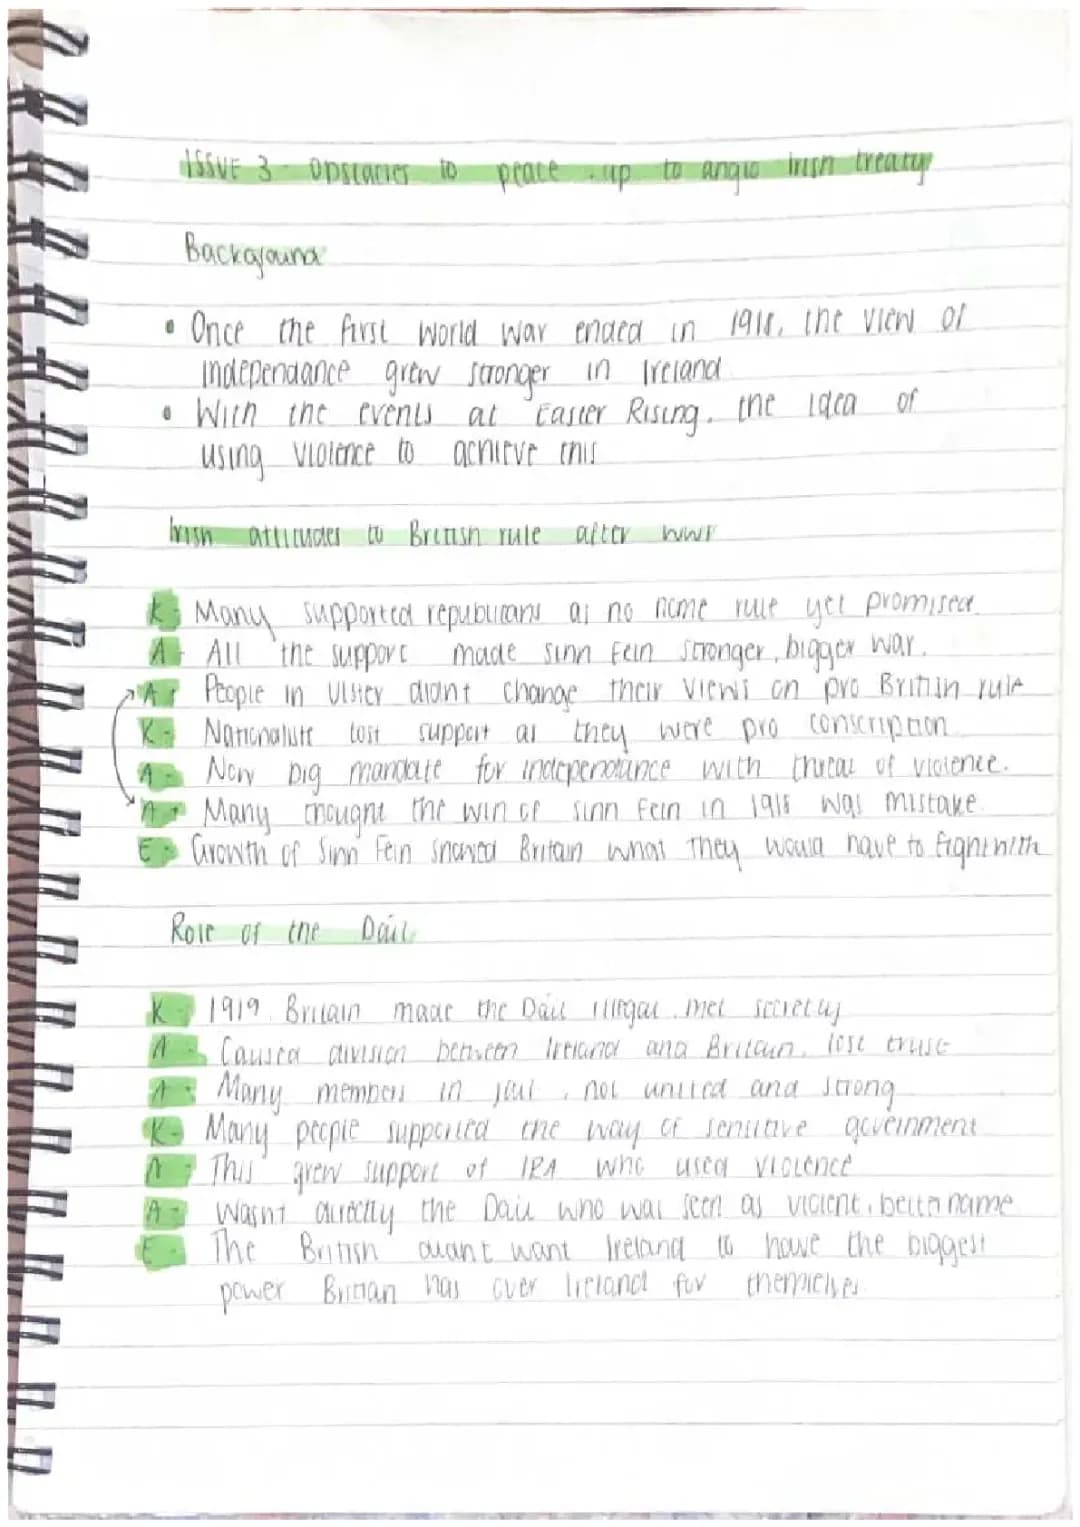 ISSUE 3 - Obstacles to peace . up to anglo irish treaty
Background
• Once the first world war ended in 1918, the view of
independance grew stronger in Ireland
• With the events at Easter Rising, the idea of
using violence to achieve this
Irish attitudes to British rule after WW1
K - Many supported republicans as no home rule yet promised.
A - All the support made Sinn Fein stronger, bigger war.
A + People in Ulster didnt change their views on pro British rule
K - Nationalist lost support as they were pro conscription
A - Now big mandate for independance with threat of violence.
A + Many thought the win of Sinn Fein in 1918 was mistake.
E - Growth of Sinn Fein showed Britain what they would have to fight with
Role of the Dáil
K - 1919 Britain made the Dáil illegal. met secretly
A - Caused division between Ireland and Britain, lost trust
A + Many members in jail, not united and strong
K - Many people supported the way of sensitive government
A - This grew support of IRA who used violence
A + Wasnt directly the Dáil who was seen as violent, name
E - The British didnt want Ireland to have the biggest
power Britian has over Ireland for themselves